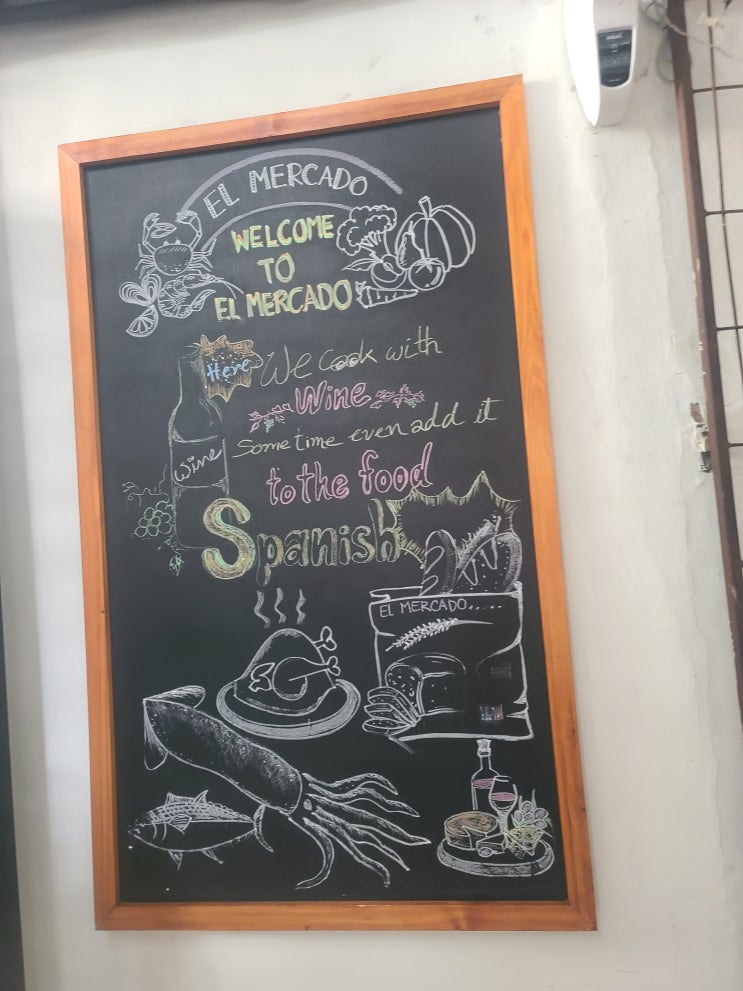 EL MERCADO
WELCOME
TO
EL MERCADO
Here We cook with
Wine
Sometime even add it
Wine
to the food
Spanish
EL MERCADO.....